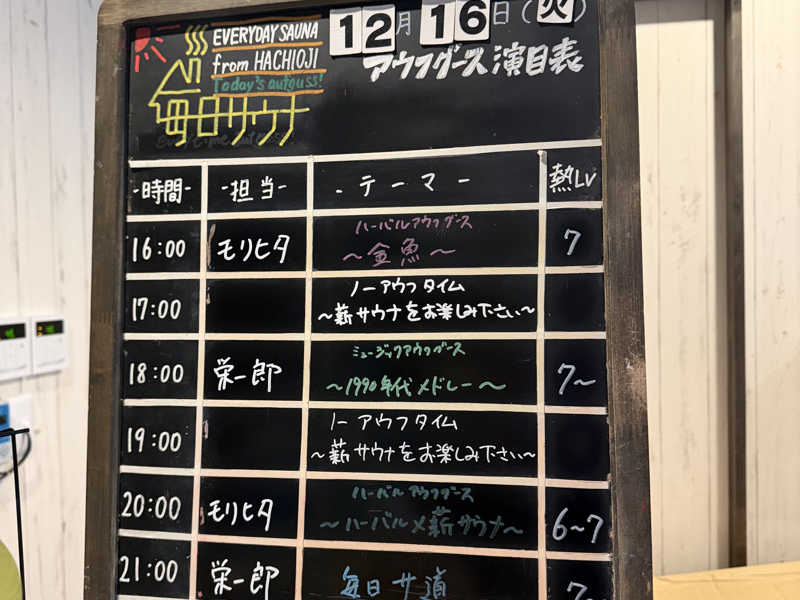 EVERYDAY SAUNA
from HACHIOJI
Today's aufguss!
毎日サウナ
12月16日(火)
アウフグース演目表
-時間- -担当- -テーマ- 熱LV
ハーバルアウフグース
16:00 モリヒタ ~金魚~ 7
ノーアウフタイム
17:00 ~薪サウナをお楽しみ下さい~
ミュージックアウフグース
18:00 栄一郎 ~1990年代メドレー~ 7~
ノーアウフタイム
19:00 ~薪サウナをお楽しみ下さい~
ハーバルアウフグース
20:00 モリヒタ ~ハーバル×薪サウナ~ 6~7
21:00 栄一郎 毎日サ道